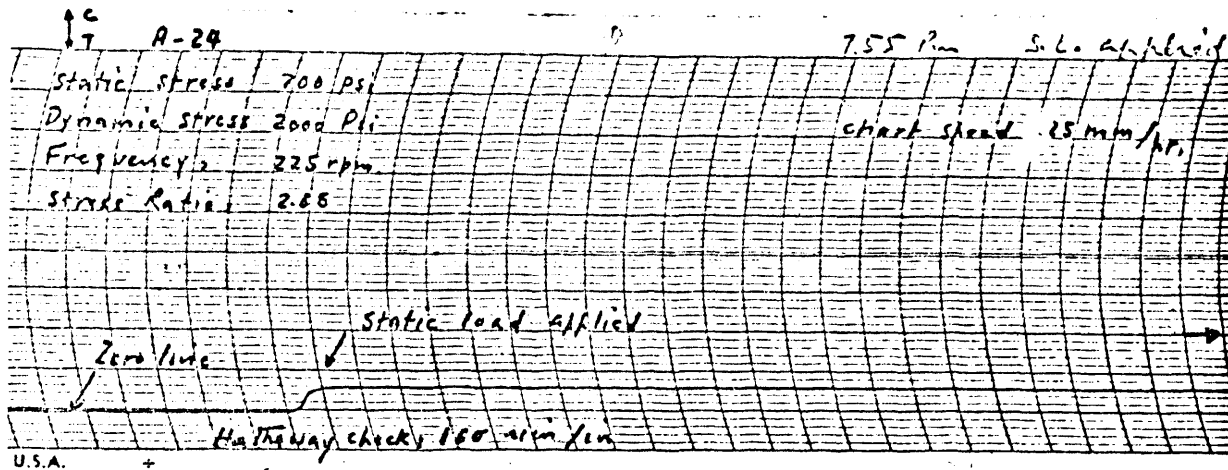 C
T A-24 7.55 Pm S.L. applied
Static stress 700 psi
Dynamic stress 2000 Psi
chart speed 25 mm/hr.
Frequency, 225 rpm.
Stress Ratio, 2.86
Static load applied
Zero line
Hathaway check, 160 min/in
U.S.A.